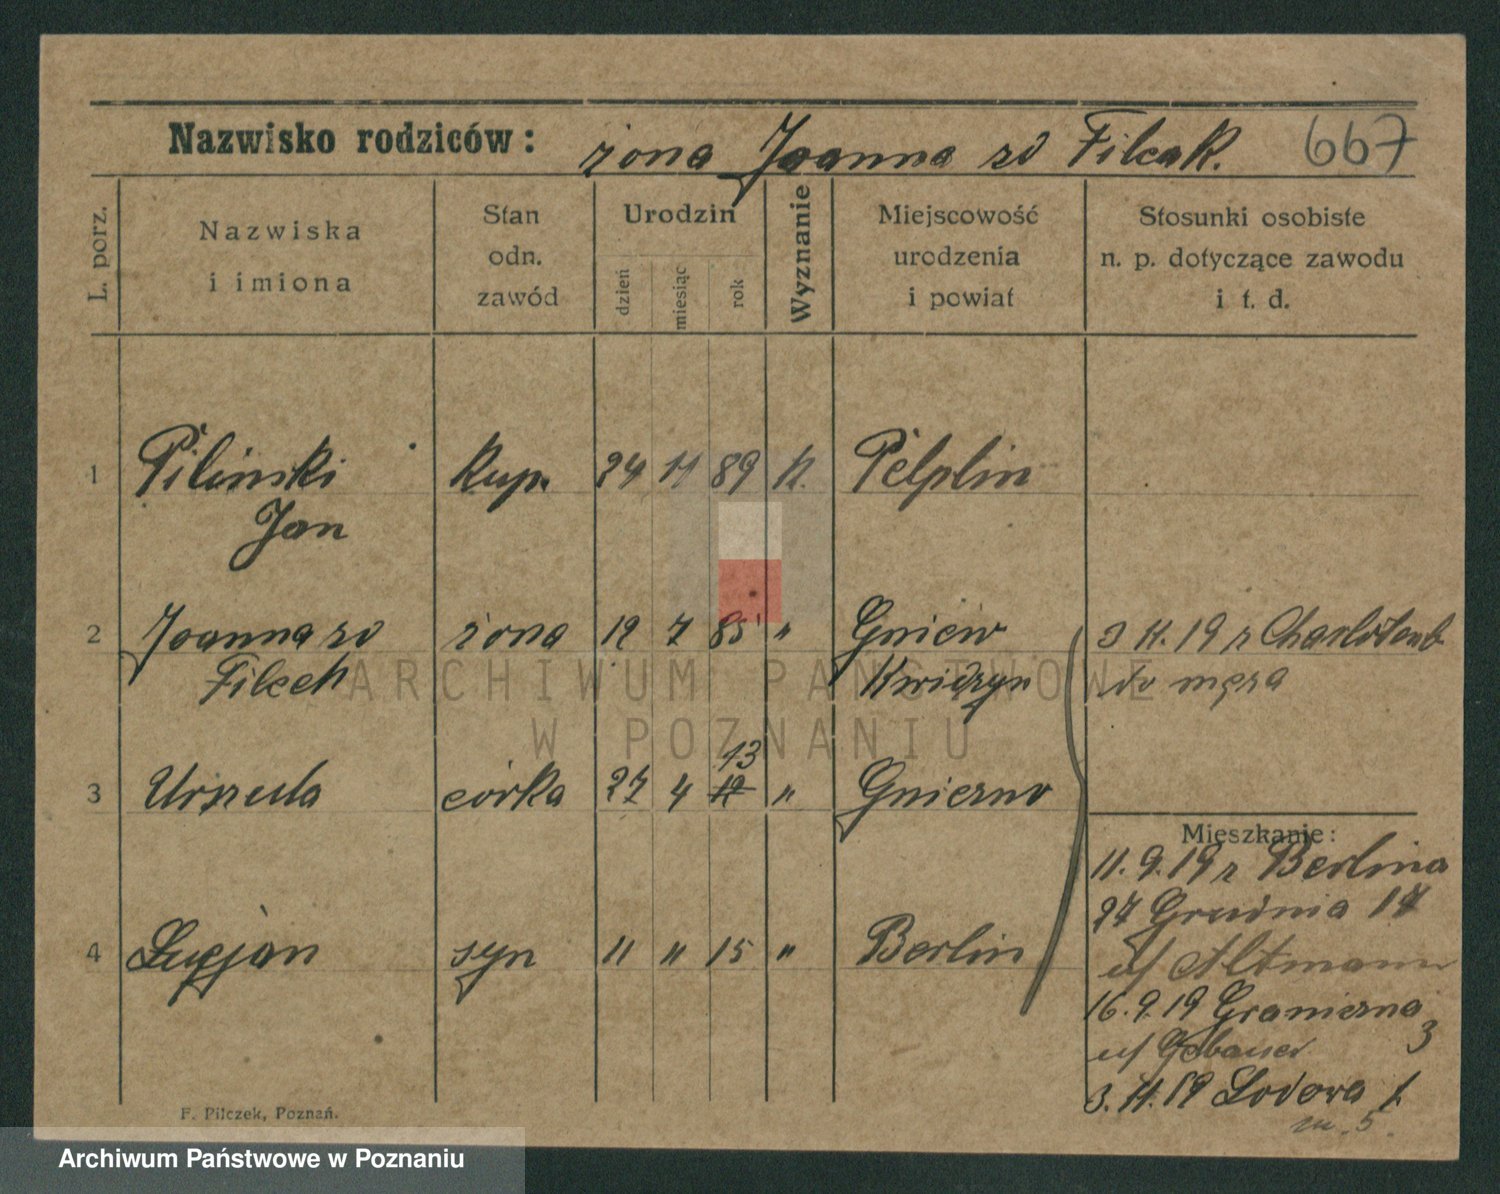 Nazwisko rodziców: żona Joanna zd Filcak. 667
L. porz.
Nazwiska
i imiona
Stan
odn.
zawód
Urodzin
dzień
miesiąc
rok
Wyznanie
Miejscowość
urodzenia
i powiat
Stosunki osobiste
n. p. dotyczące zawodu
i t. d.
1 Piliński kup. 24 11 89 k. Pelplin
Jan
2 Joanna zd żona 19 7 85 " Gniew 3 11. 19 z Charlotenb
Filcek Kwidzyn do męża
13
3 Urszula córka 27 4 12 " Gniezno
Mieszkanie:
11. 9. 19 z Berlina
27 Grudnia 17
u/ Altmann
4 Lucjan syn 11 " 15 " Berlin
16. 9. 19 Graniczna 3
u/ Gebauer
3. 11. 19 Lodowa 1.
m. 5.
F. Pilczek, Poznań.
ARCHIWUM PAŃSTWOWE
W POZNANIU
Archiwum Państwowe w Poznaniu